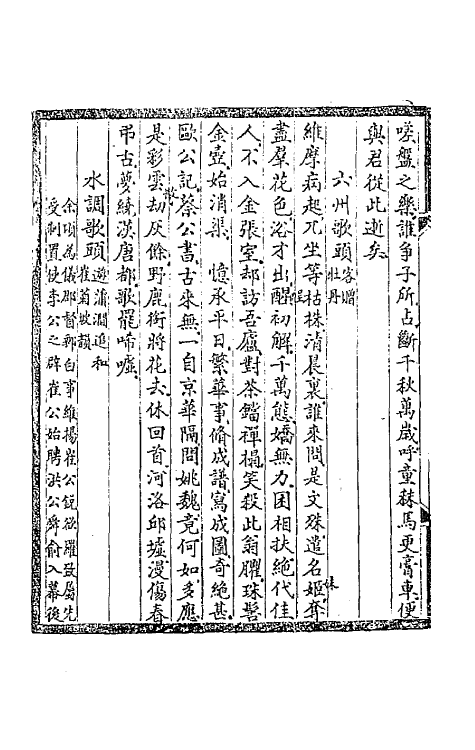 嗟盤之樂誰争子所占斷千秋萬歲呼童秣馬更膏車便
與君從此逝矣
六州歌頭客贈牡丹
維摩病起兀坐等枯株清晨裏誰來問是文殊遣名姬奪
盡羣花色浴才出酲初解千萬態嬌無力困相扶絶代佳
人不入金張室却訪吾廬對茶鐺禪榻笑殺此翁臞珠髻
金壺始消渠 憶承平日繁華事脩成譜寫成圖奇絶甚
歐公記蔡公書古來無一自京華隔問姚魏竟何如多應
是彩雲散劫灰餘野鹿銜將花去休回首河洛邱墟漫傷春
弔古夢繞漢唐都歌罷嗚嘘
水調歌頭遊蒲澗追和崔菊坡韻
余頃為儀郡督郵白事維揚崔公銳欲羅致屬先
受制置使李公之辟崔公始聘洪公舜俞入幕後